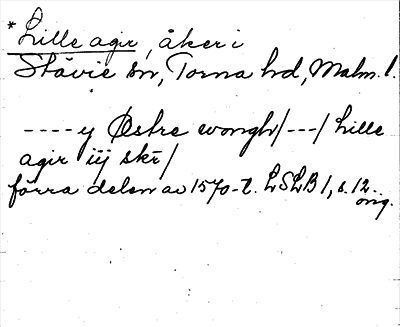 *Lille agir, åker i
Stävie sn, Torna hd, Malm. l.
---- y Østre wongh/---/ Lille
agir iij skr/
förra delen av 1570-t. LSLB 1, s. 12.
orig.